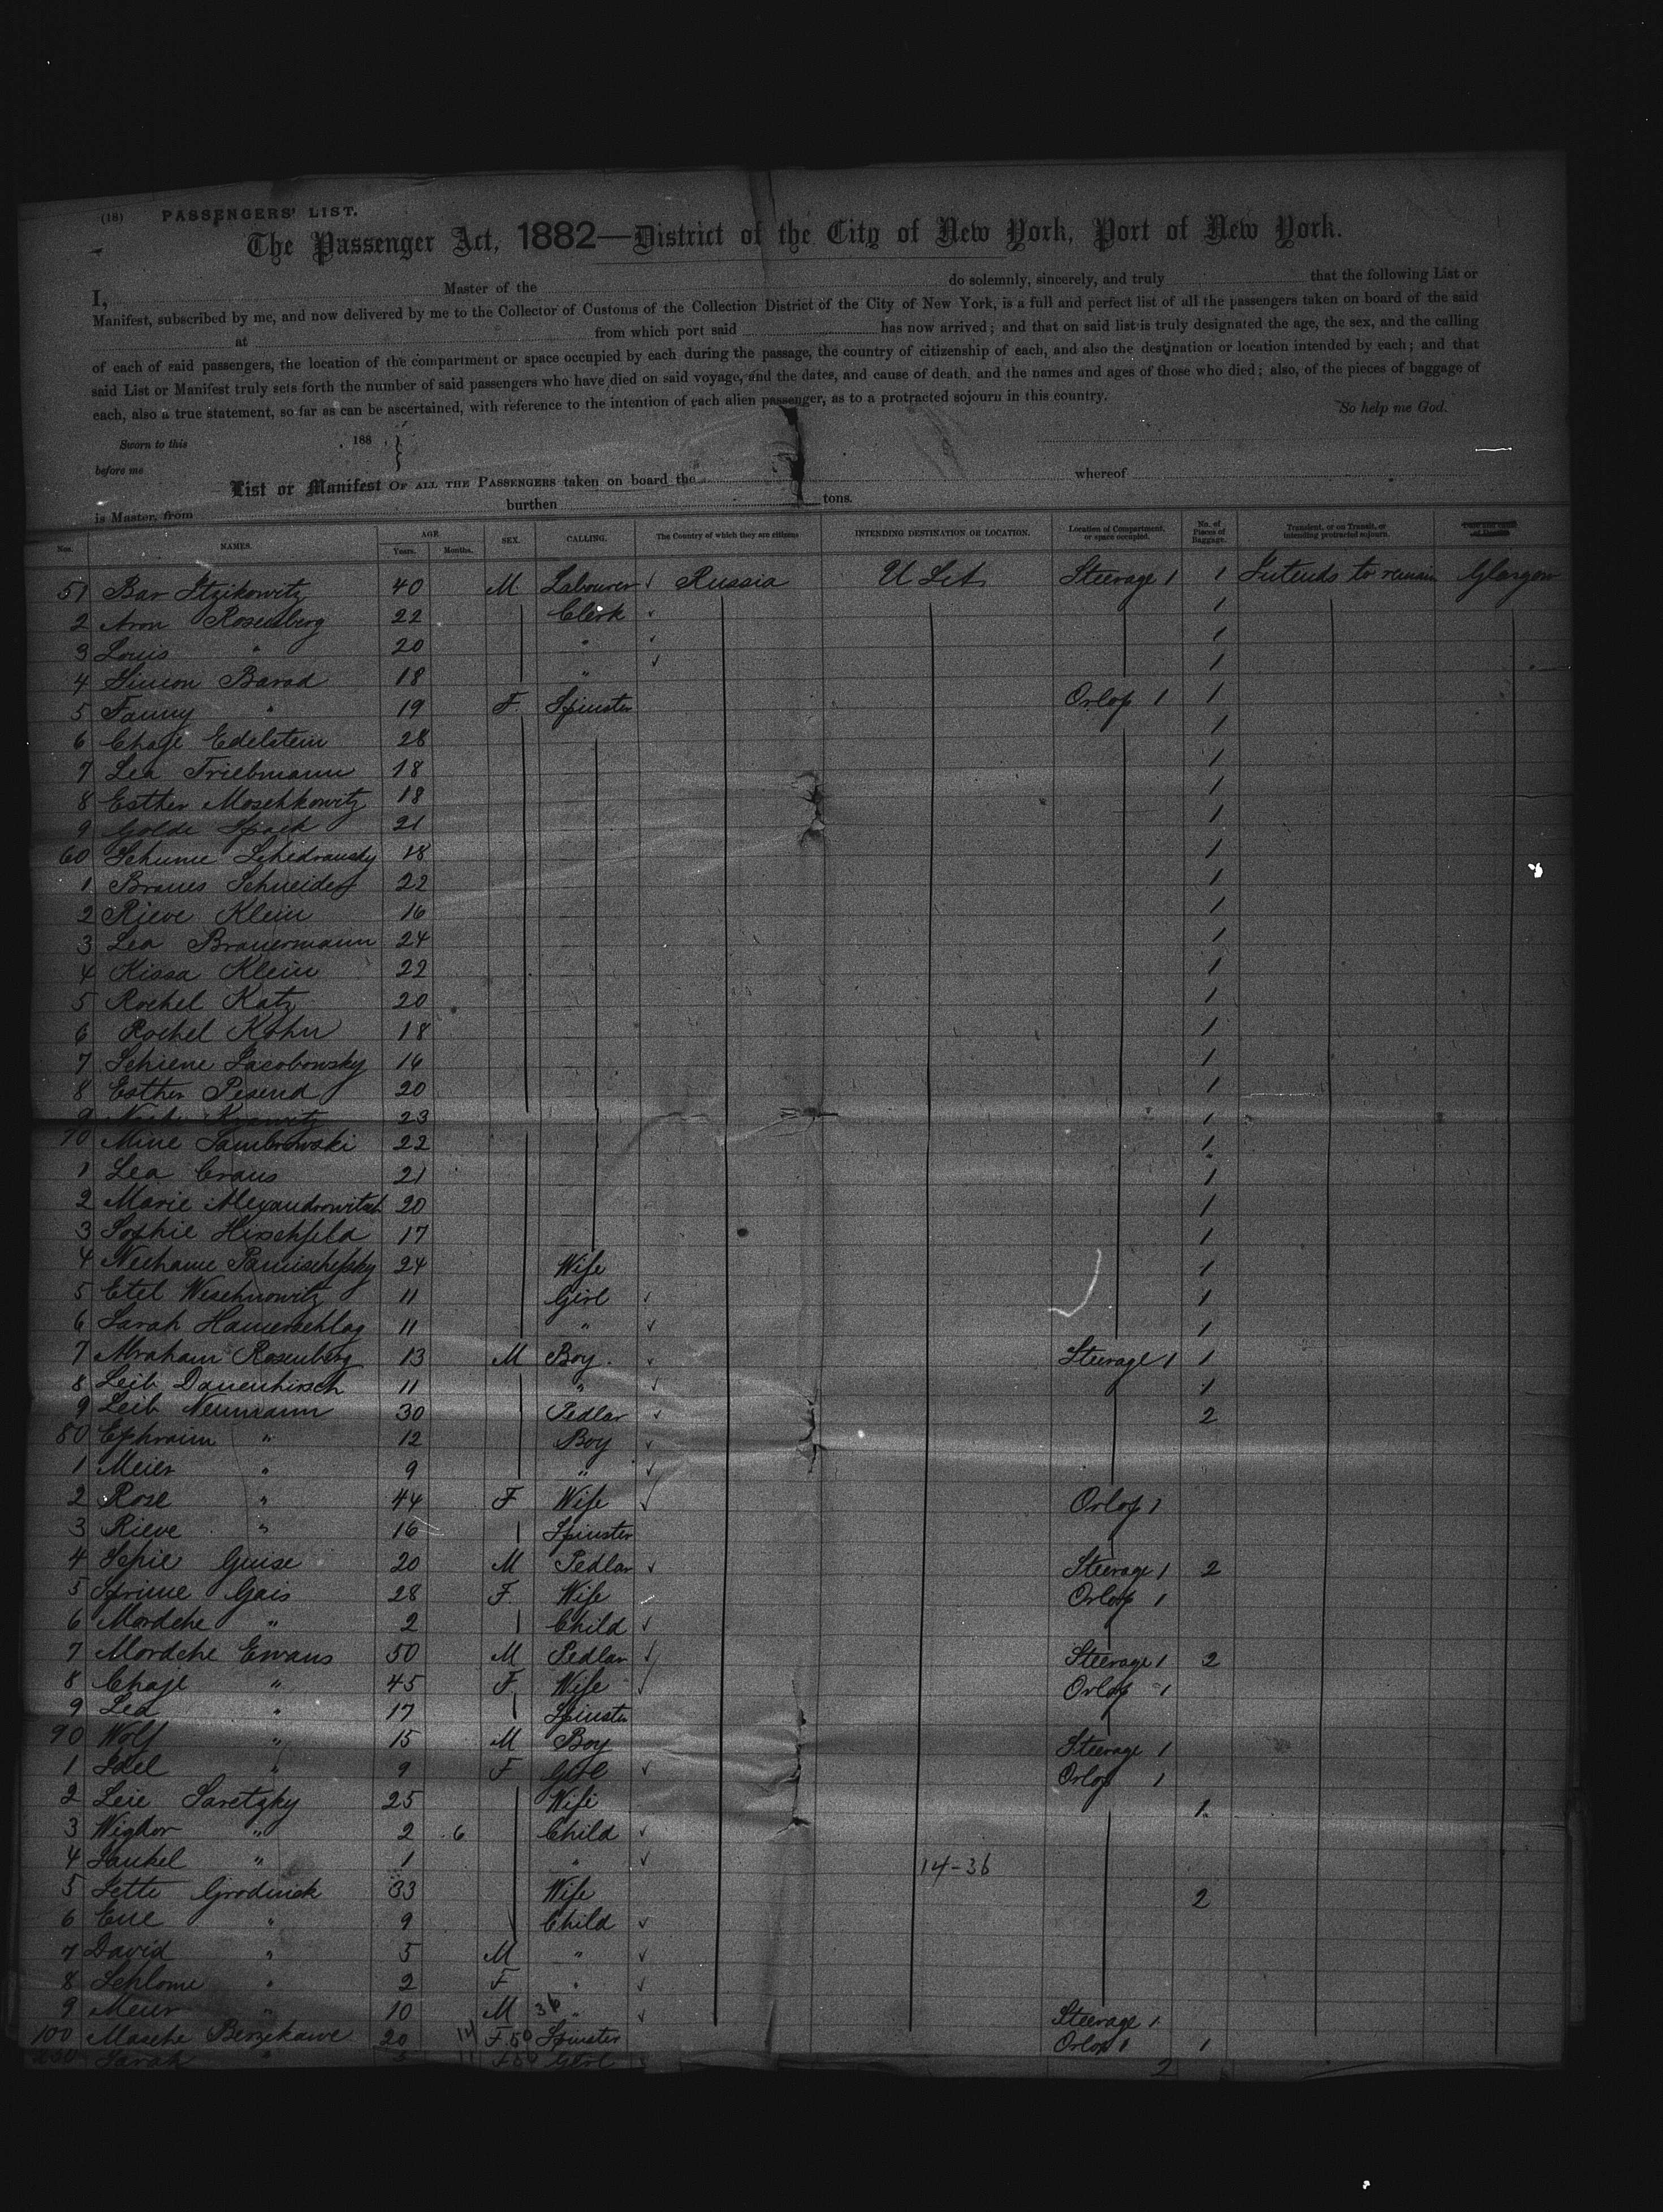 (18) PASSENGERS' LIST.
The Passenger Act, 1882—District of the City of New York, Port of New York.
I, Master of the do solemnly, sincerely, and truly that the following List or
Manifest, subscribed by me, and now delivered by me to the Collector of Customs of the Collection District of the City of New York, is a full and perfect list of all the passengers taken on board of the said
at from which port said has now arrived; and that on said list is truly designated the age, the sex, and the calling
of each of said passengers, the location of the compartment or space occupied by each during the passage, the country of citizenship of each, and also the destination or location intended by each; and that
said List or Manifest truly sets forth the number of said passengers who have died on said voyage, and the dates, and cause of death, and the names and ages of those who died; also, of the pieces of baggage of
each, also a true statement, so far as can be ascertained, with reference to the intention of each alien passenger, as to a protracted sojourn in this country. So help me God.
Sworn to this , 188 . }
before me
List or Manifest OF ALL THE PASSENGERS taken on board the whereof
is Master, from burthen tons.
Nos. NAMES. AGE Years. Months. SEX. CALLING. The Country of which they are citizens INTENDING DESTINATION OR LOCATION. Location of Compartment, or space occupied. No. of Pieces of Baggage. Transient, or on Transit, or intending protracted sojourn.
51 Bar Itzikowitz 40 M Labourer Russia U StA Steerage 1 1 Intends to remain Glasgow
2 Aron Rosenberg 22 Clerk 1
3 Louis " 20 " 1
4 Simon Barad 18 " 1
5 Fanny " 19 F Spinster Orlop 1 1
6 Chaje Edelstein 28 1
7 Lea Triebmann 18 1
8 Esther Moschkowitz 18 1
9 Golde Spack 21 1
60 Schume 18 1
1 Braues Schneider 22 1
2 Rieve Klein 16 1
3 Lea Brauermann 24 1
4 Kissa Klein 22 1
5 Rochel Katz 20 1
6 Rochel Kohn 18 1
7 Schiene Jacobowsky 16 1
8 Esther Pesend 20 1
9 23 1
70 Mine Sambrowski 22 1
1 Lea Craus 21 1
2 Marie Alexandrowitsch 20 1
3 Sophie Hirschfeld 17 1
4 Nechame 24 Wife 1
5 Etel Weschnowitz 11 Girl 1
6 Sarah Hamerschlag 11 " 1
7 Abraham Rosenberg 13 M Boy Steerage 1 1
8 Leib Dauenhirsch 11 " 1
9 Leib Neumann 30 Pedlar 2
80 Ephraim " 12 Boy
1 Meier " 9 "
2 Rose " 44 F Wife Orlop 1
3 Rieve " 16 Spinster
4 Schie Guise 20 M Pedlar Steerage 1 2
5 Sprime Gais 28 F Wife Orlop 1
6 Mordche " 2 Child
7 Mordche Ewans 50 M Pedlar Steerage 1 2
8 Chaje " 45 F Wife Orlop 1
9 Lea " 17 Spinster
90 Wolf " 15 M Boy Steerage 1
1 Idel " 9 F Girl Orlop 1
2 Leie Saretzky 25 Wife 1
3 Wigdor " 2 6 Child
4 Jankel " 1 " 14-36
5 Jette Grodnick 33 Wife 2
6 Ene " 9 Child
7 David " 5 M "
8 Schlome " 2 F "
9 Meier " 10 M 36 " Steerage 1
100 Masche Berzekawe 20 14 F 50 Spinster Orlop 1 1
Sarah " 5 11 F 50 Girl
2